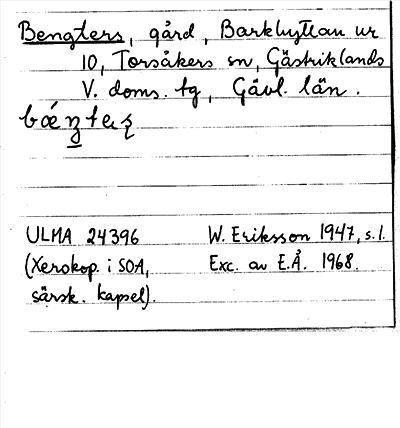 Bengters, gård, Barkhyttan nr
10, Torsåkers sn, Gästriklands
V. doms. tg, Gävl. län.
ULMA 24396 W. Eriksson 1947, s. 1.
(Xerokop. i SOA, Exc. av E.Å. 1968.
särsk. kapsel).